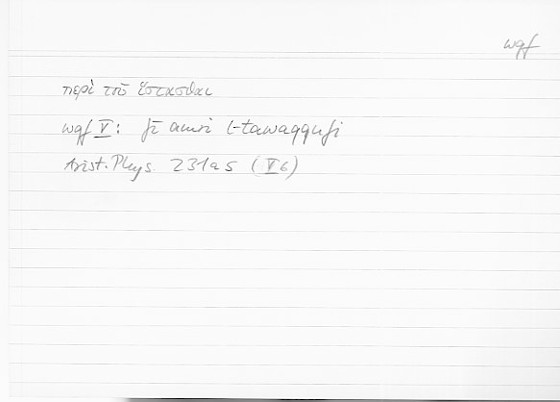 wqf
περὶ τοῦ ἵστασθαι
wqf V: fī amri l-tawaqqufi
Arist. Phys. 231a5 (V 6)